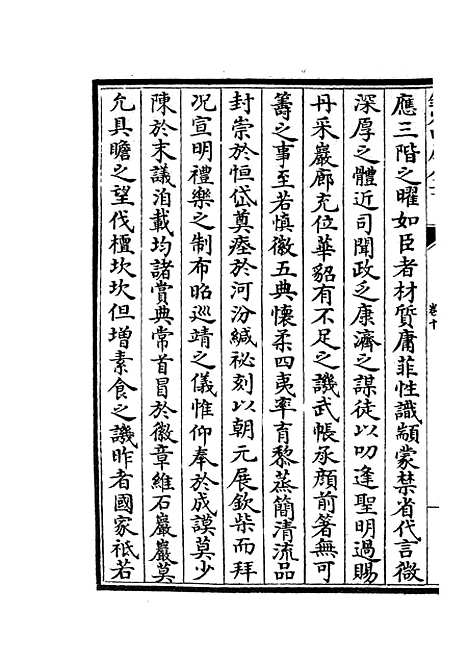 應三階之曜如臣者材質庸菲性識顓蒙禁省代言微
深厚之體近司聞政乏康濟之謀徒以叨逢聖明過賜
丹采巖廊充位華貂有不足之譏武帳承顔前箸無可
籌之事至若慎徽五典懷柔四夷率育黎蒸簡清流品
封崇於恒岱奠瘞於河汾緘祕刻以朝元展欽柴而拜
况宣明禮樂之制布昭巡靖之儀惟仰奉於成謨莫少
陳於末議洎載均諸賞典常首冒於徽章維石巖巖莫
允具瞻之望伐檀坎坎但增素食之譏昨者國家祗若
卷十